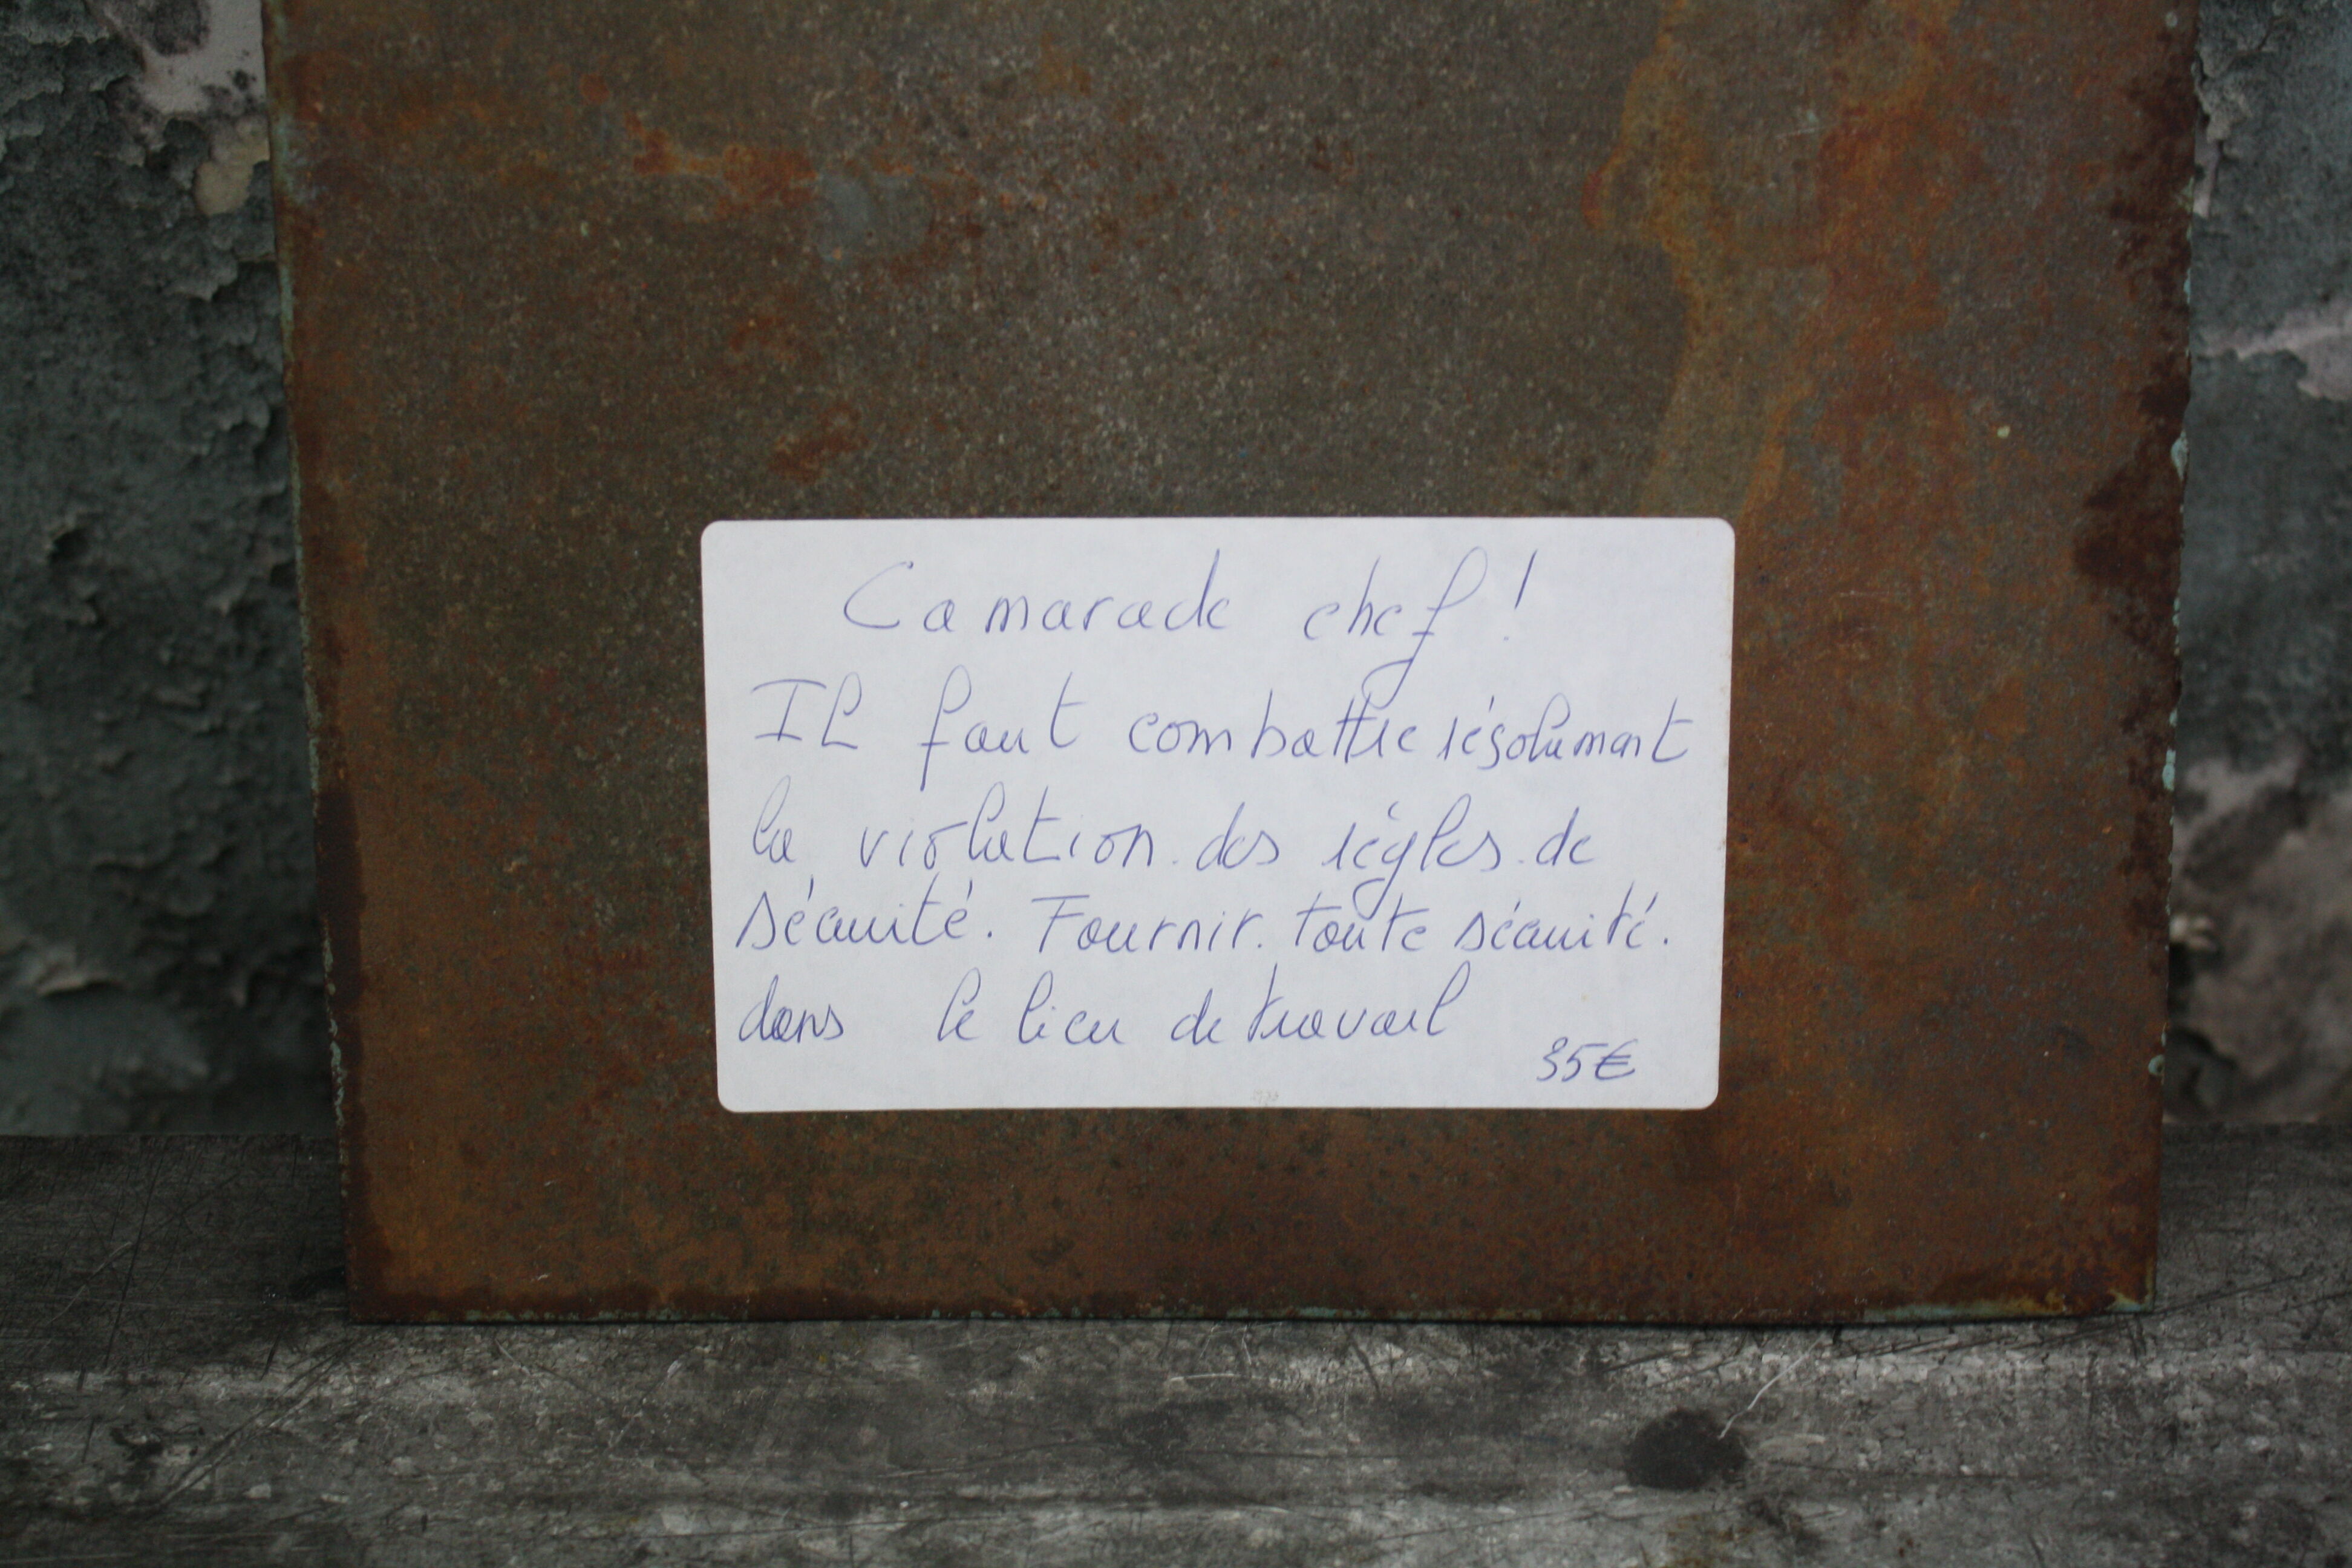 Camarade chef !
Il faut combattre résolument
la violation des règles de
sécurité. Fournir toute sécurité.
dans le lieu de travail
35€